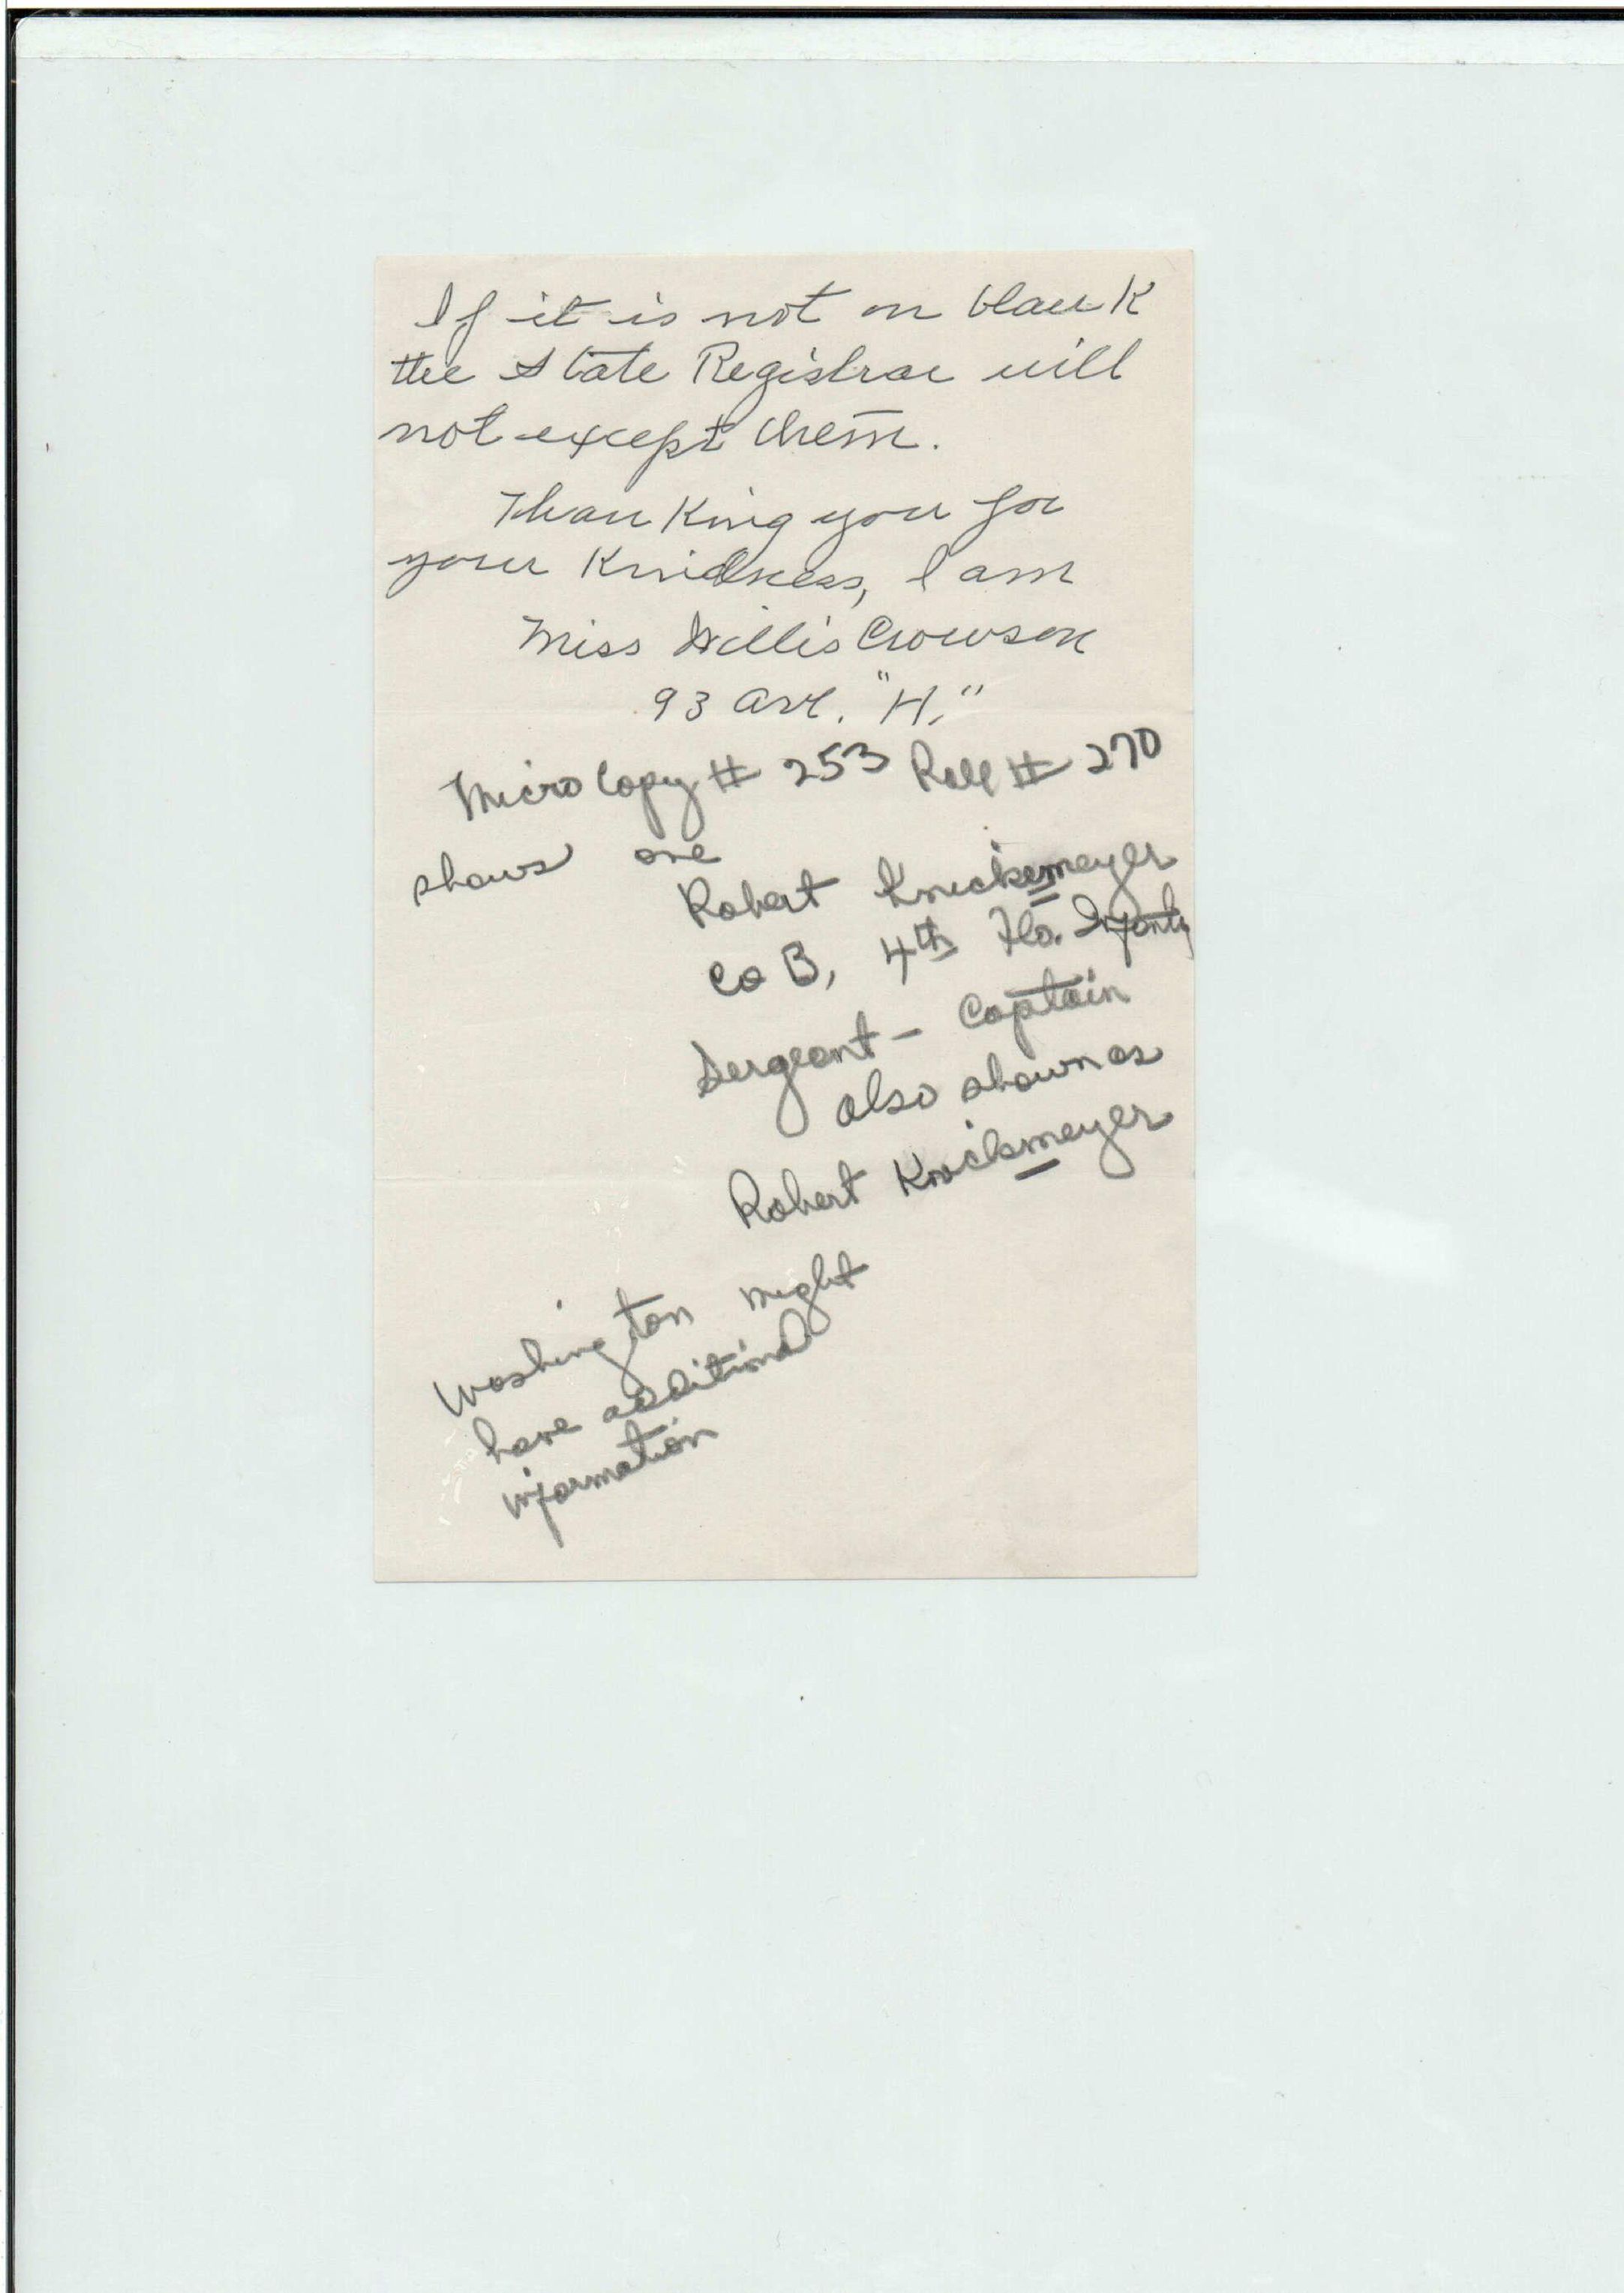 If it is not on blank
the State Registrar will
not except them.
Thanking you for
your Kindness, I am
Miss Willis Crowson
93 Ave. "H."
Micro Copy # 253 Roll # 270
shows one
Robert Knickemeyer
Co B, 4th Fla. Infantry
Sergeant - Captain
also shown as
Robert Knickmeyer
Washington might
have additional
information